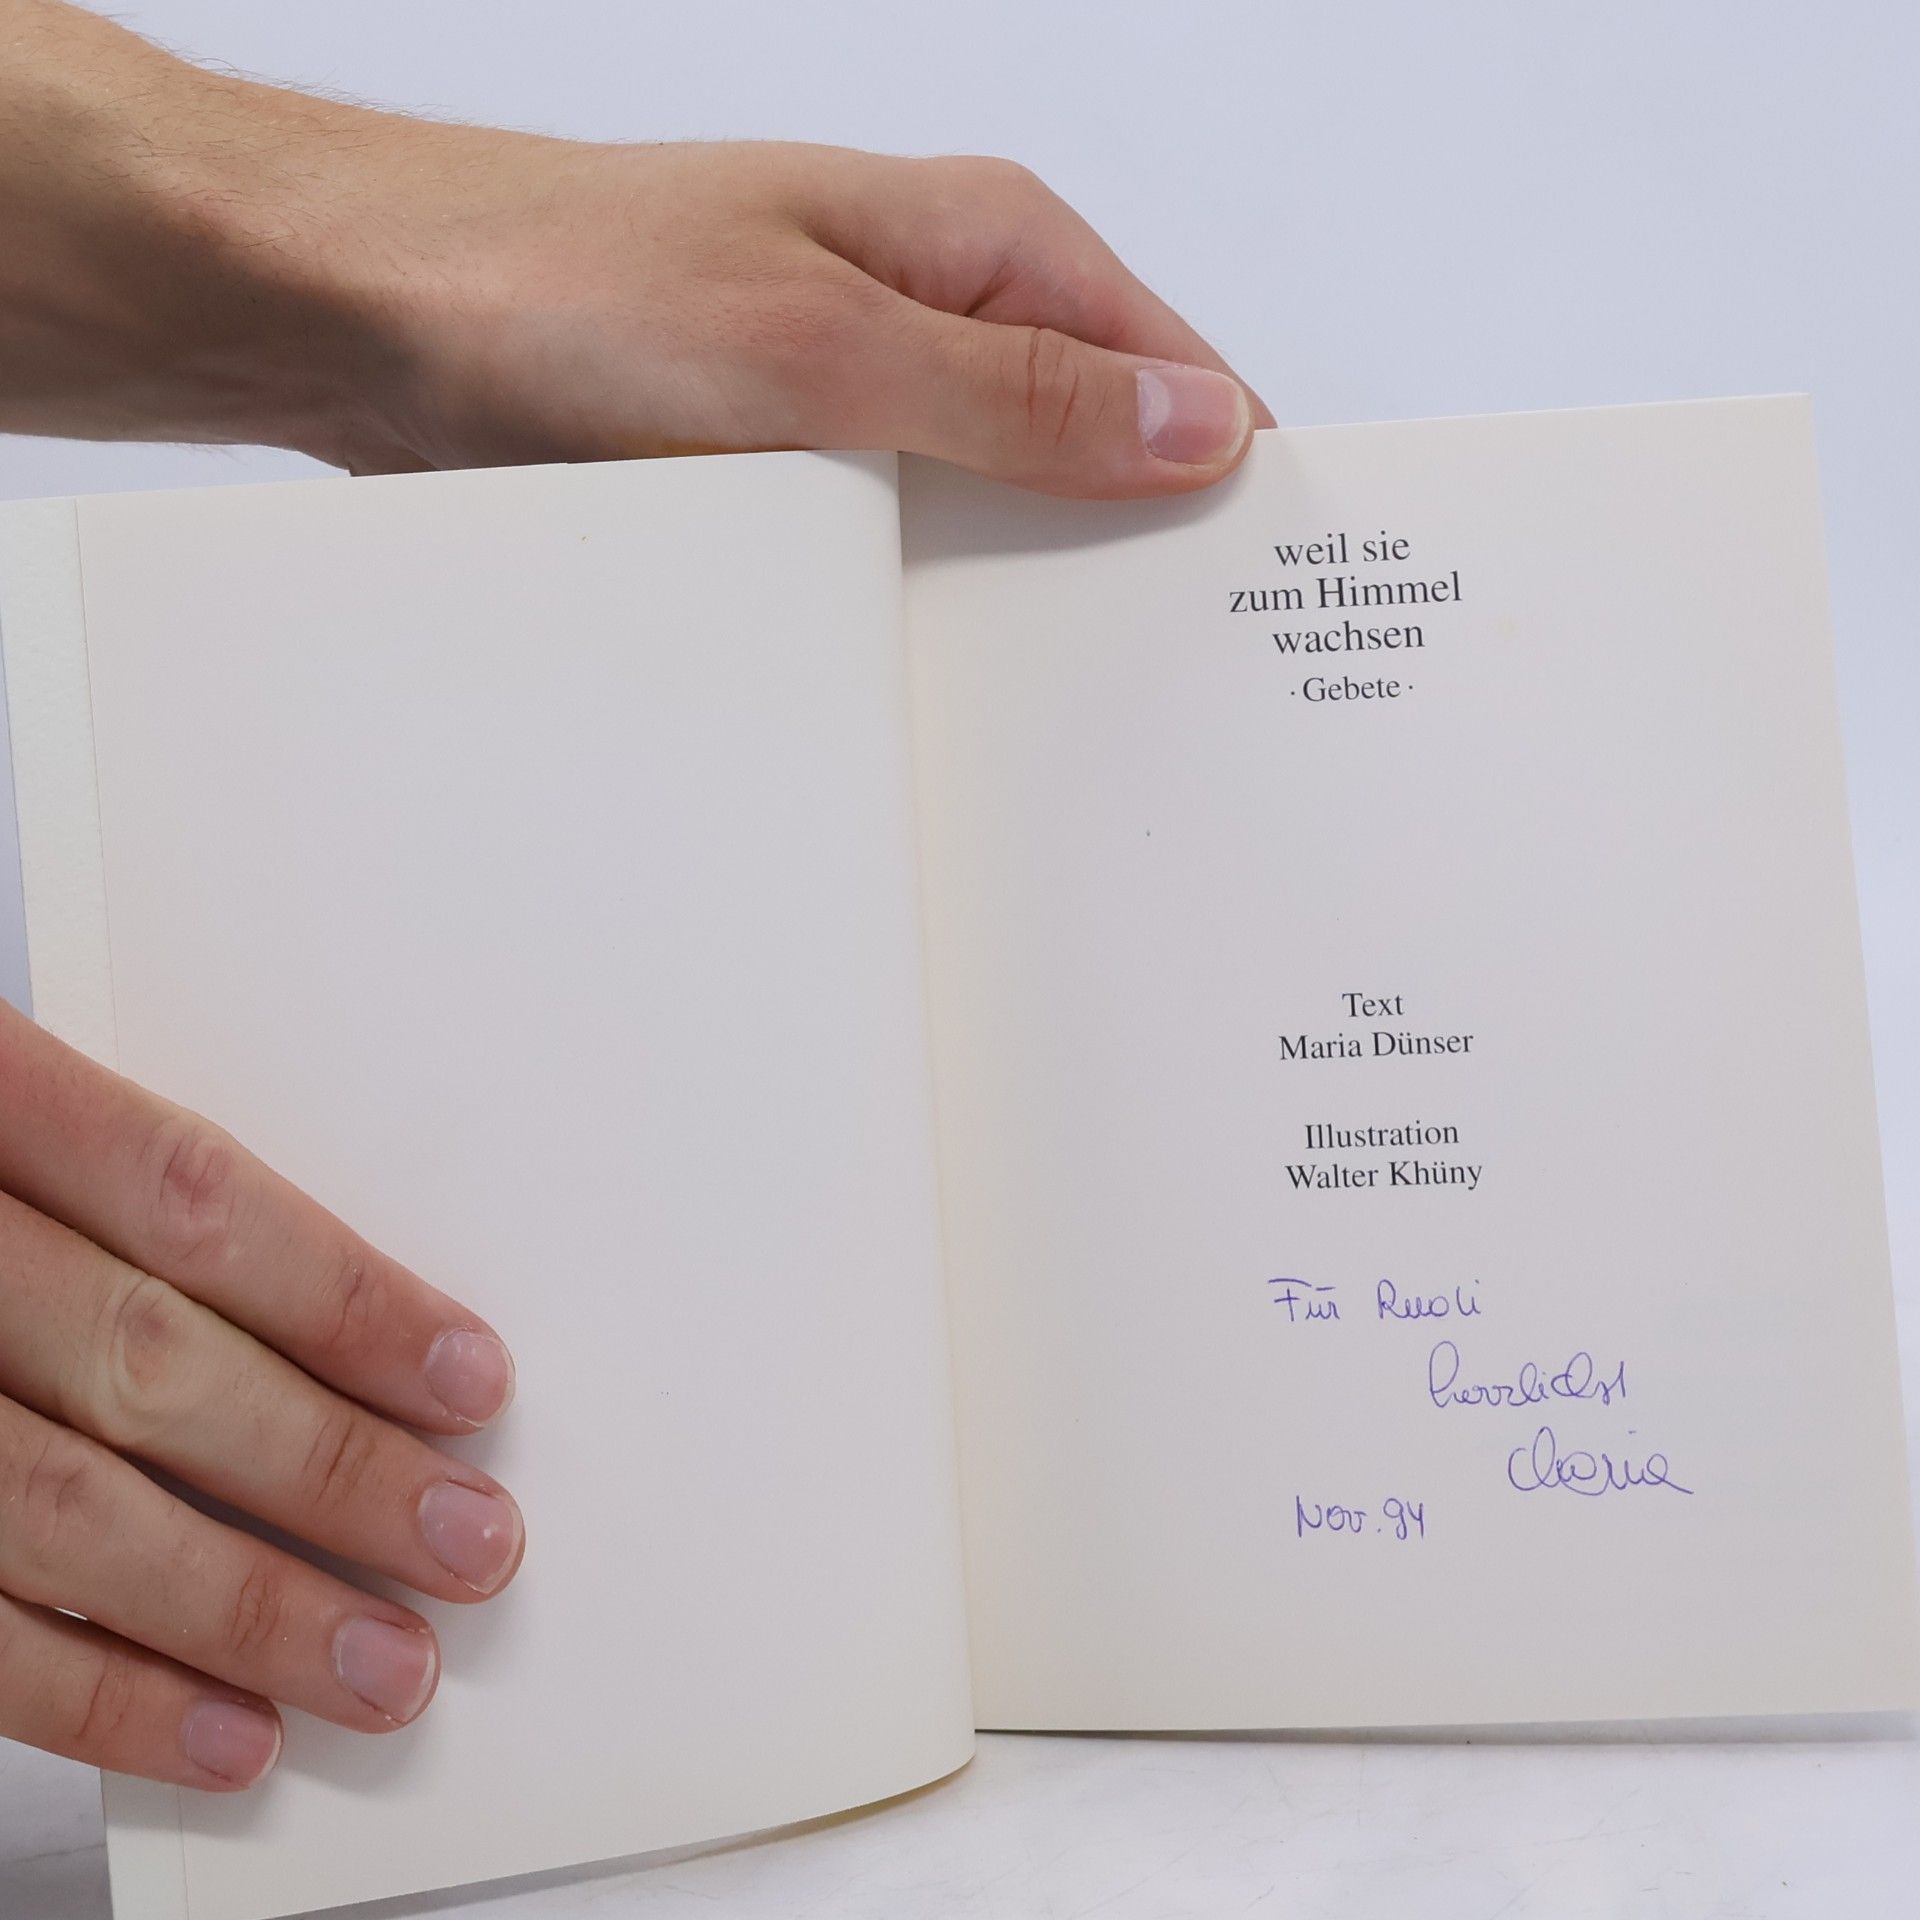 weil sie
zum Himmel
wachsen
· Gebete ·
Text
Maria Dünser
Illustration
Walter Khüny
Für Rudi
herzlichst
Maria
Nov. 94